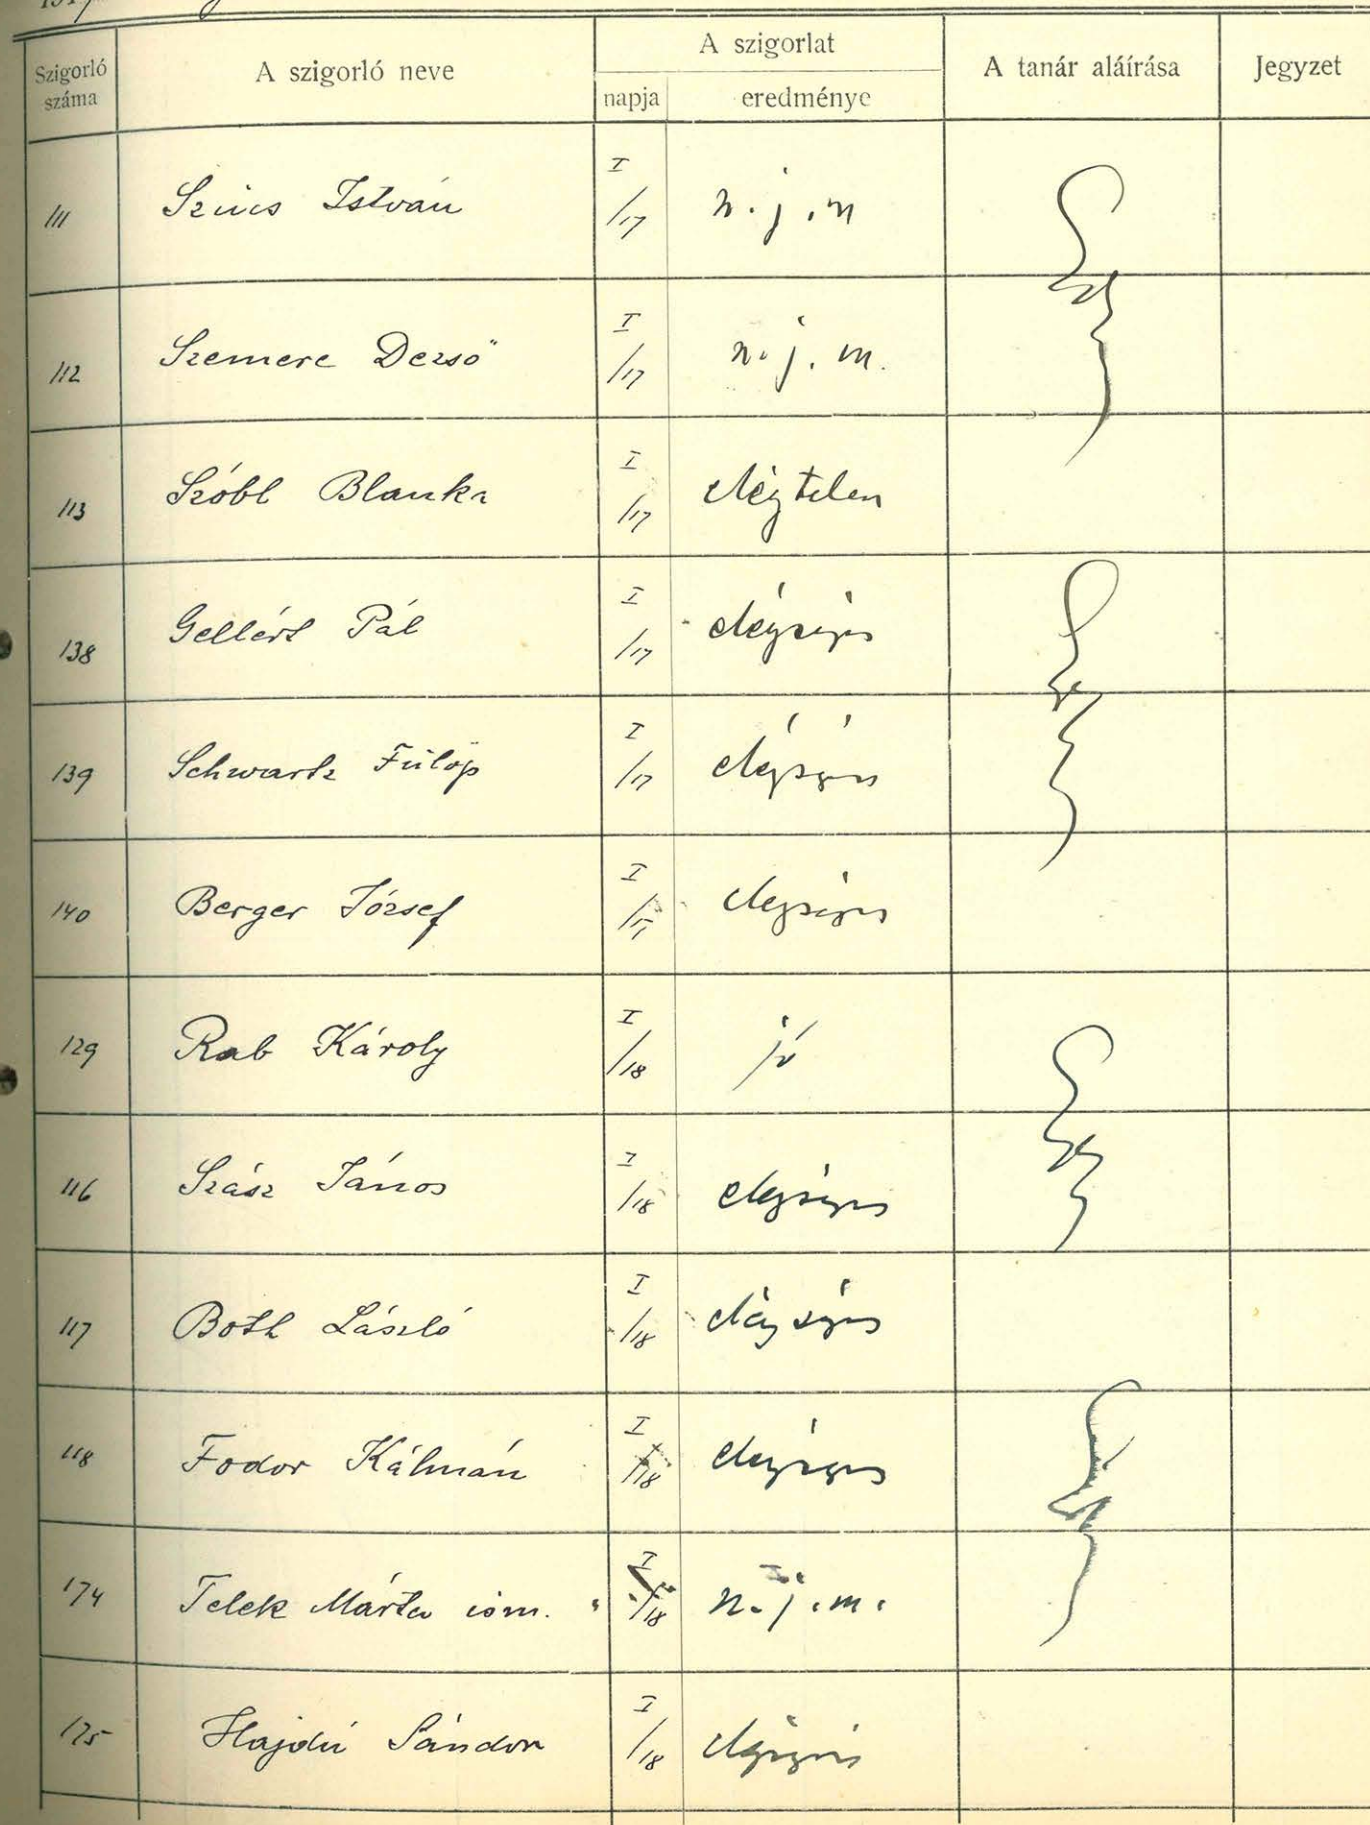 Szigorló száma A szigorló neve A szigorlat napja eredménye A tanár aláírása Jegyzet
111 Szücs István I/17 n.j.m
112 Szemere Dezső I/17 n.j.m.
113 Szóbl Blanka I/17 elégtelen
138 Gellért Pál I/17 elégséges
139 Schwartz Fülöp I/17 elégséges
140 Berger József I/17 elégséges
129 Rab Károly I/18 jó
116 Szász János I/18 elégséges
117 Both László I/18 elégséges
118 Fodor Kálmán I/18 elégséges
174 Telek Márta ism. I/18 n.j.m.
175 Hajdú Sándor I/18 elégséges